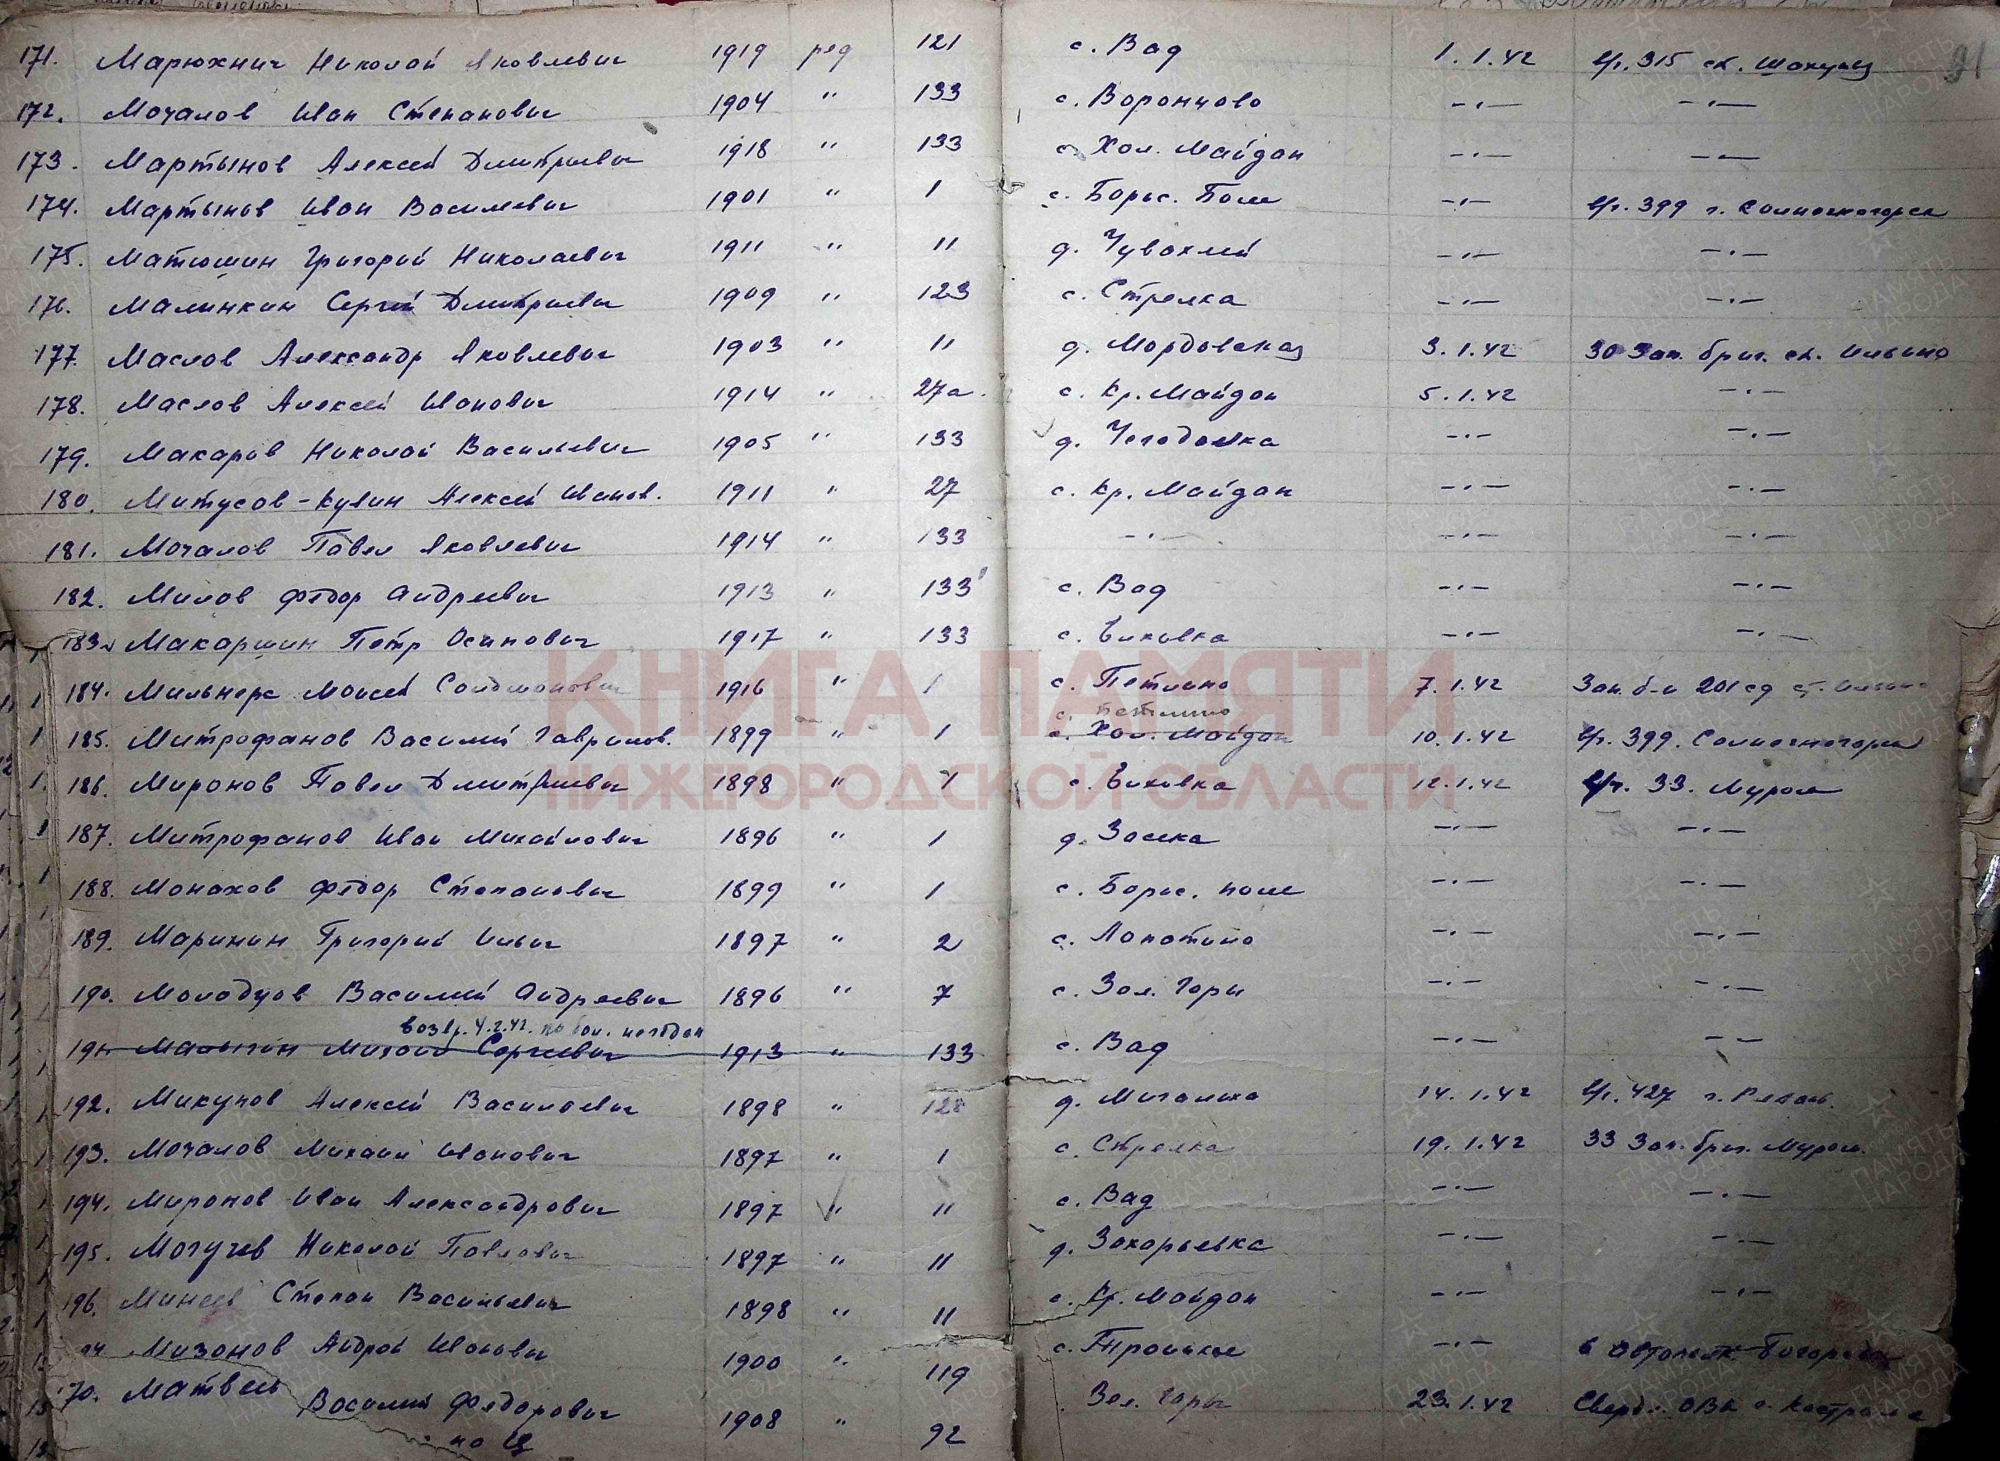 91
171. Марюхнич Николай Яковлевич 1919 ряд 121 с. Вад 1.1.42 в/ч. 315 ст. Шокуец
172. Мочалов Иван Степанович 1904 " 133 с. Воронцово -"- -"-
173. Мартынов Алексей Дмитриевич 1918 " 133 с. Хол. Майдан -"- -"-
174. Мартынов Иван Василевич 1901 " 1 с. Борис. Поле -"- в/ч. 399 г. Солнечногорск
175. Матюшин Григорий Николаевич 1911 " 11 д. Чувахлей -"- -"-
176. Малинкин Сергей Дмитриевич 1909 " 123 с. Стрелка -"- -"-
177. Маслов Александр Яковлевич 1903 " 11 д. Мордовская 3.1.42 30 Зап. бриг. ст. Ильино
178. Маслов Алексей Иванович 1914 " 27а с. Кр. Майдан 5.1.42 -"-
179. Макаров Николай Васильевич 1905 " 133 д. Чегодаевка -"- -"-
180. Митусов-Кулин Алексей Иванов. 1911 " 27 с. Кр. Майдан -"- -"-
181. Мочалов Павел Яковлевич 1914 " 133 -"- -"- -"-
182. Милов Федор Андреевич 1913 " 133 с. Вад -"- -"-
183. Макаршин Петр Осипович 1917 " 133 с. -"- -"-
184. Мильнера Моисей 1916 " 1 с. Петлино 7.1.42 Зап. б-н 201 сд ст.
с. Петлино
185. Митрофанов Василий Гаврилов. 1899 " 1 с. Хол. Майдан 10.1.42 в/ч. 399. Солнечногорск
186. Миронов Павел Дмитриевич 1898 " 1 с. 12.1.42 в/ч. 33. Муром
187. Митрофанов Иван Михайлович 1896 " 1 д. Засека -"- -"-
188. Монахов Федор Степанович 1899 " 1 с. Борис. поле -"- -"-
189. Маринин Григорий Ильич 1897 " 2 с. Лопатино -"- -"-
190. Молодцов Василий Андреевич 1896 " 7 с. Зел. Горы -"- -"-
возвр. 4.2.42. по бол. негоден
191. Малыгин Михаил Сергеевич 1913 " 133 с. Вад -"- -"-
192. Микунов Алексей Василоевич 1898 " 128 д. Мигалиха 14.1.42 в/ч. 427 г. Рязань.
193. Мочалов Михаил Иванович 1897 " 1 с. Стрелка 19.1.42 33 Зап. бриг. Муром.
194. Миронов Иван Александрович 1897 " 11 с. Вад -"- -"-
195. Могучев Николай Павлович 1897 " 11 д. Захарьевка -"- -"-
196. Минеев Степан Васильевич 1898 " 11 с. Кр. Майдан -"- -"-
Мизонов Андрей Иванович 1900 " 119 с. Троицкое -"- 6 автополк
Матвеев Василий Федорович 1908 " 92 Зел. Горы 23.1.42 Сверд. ОВК г. Кострома
КНИГА ПАМЯТИ
НИЖЕГОРОДСКОЙ ОБЛАСТИ
ПАМЯТЬ НАРОДА